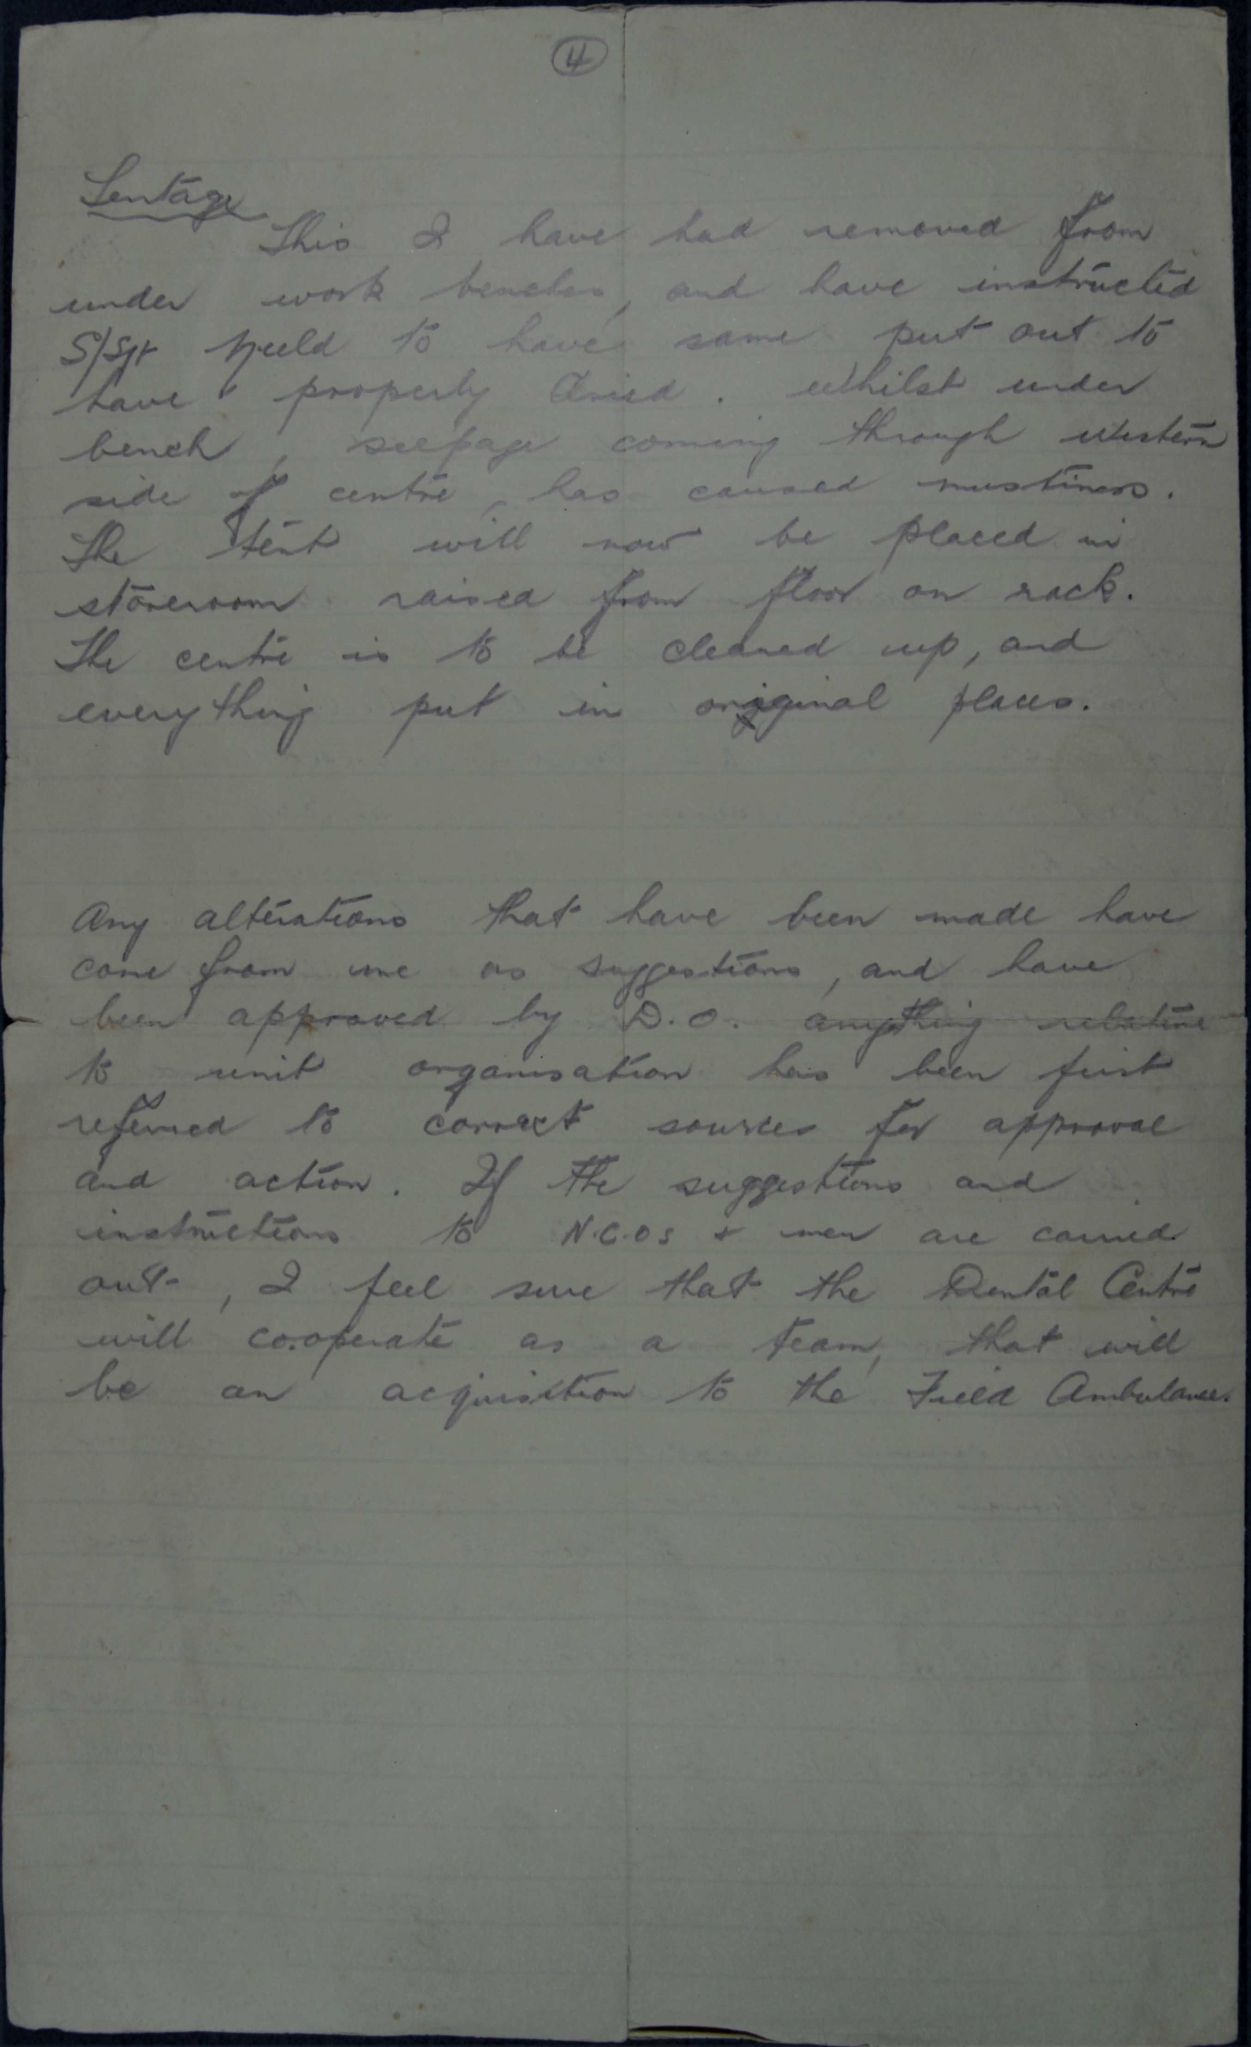 4
Tentage
This I have had removed from
under work benches, and have instructed
S/Sgt to have same put out to
have properly dried. Whilst under
bench, seepage coming through western
side of centre, has caused mustiness.
The tent will now be placed in
storeroom raised from floor on rack.
The centre is to be cleaned up, and
everything put in original places.
Any alterations that have been made have
come from me as suggestions, and have
been approved by D.O. anything relative
to unit organisation has been first
referred to correct sources for approval
and action. If the suggestions and
instructions to N.C.Os & men are carried
out, I feel sure that the Dental Centre
will co.operate as a team, that will
be an acquisition to the Field Ambulance.